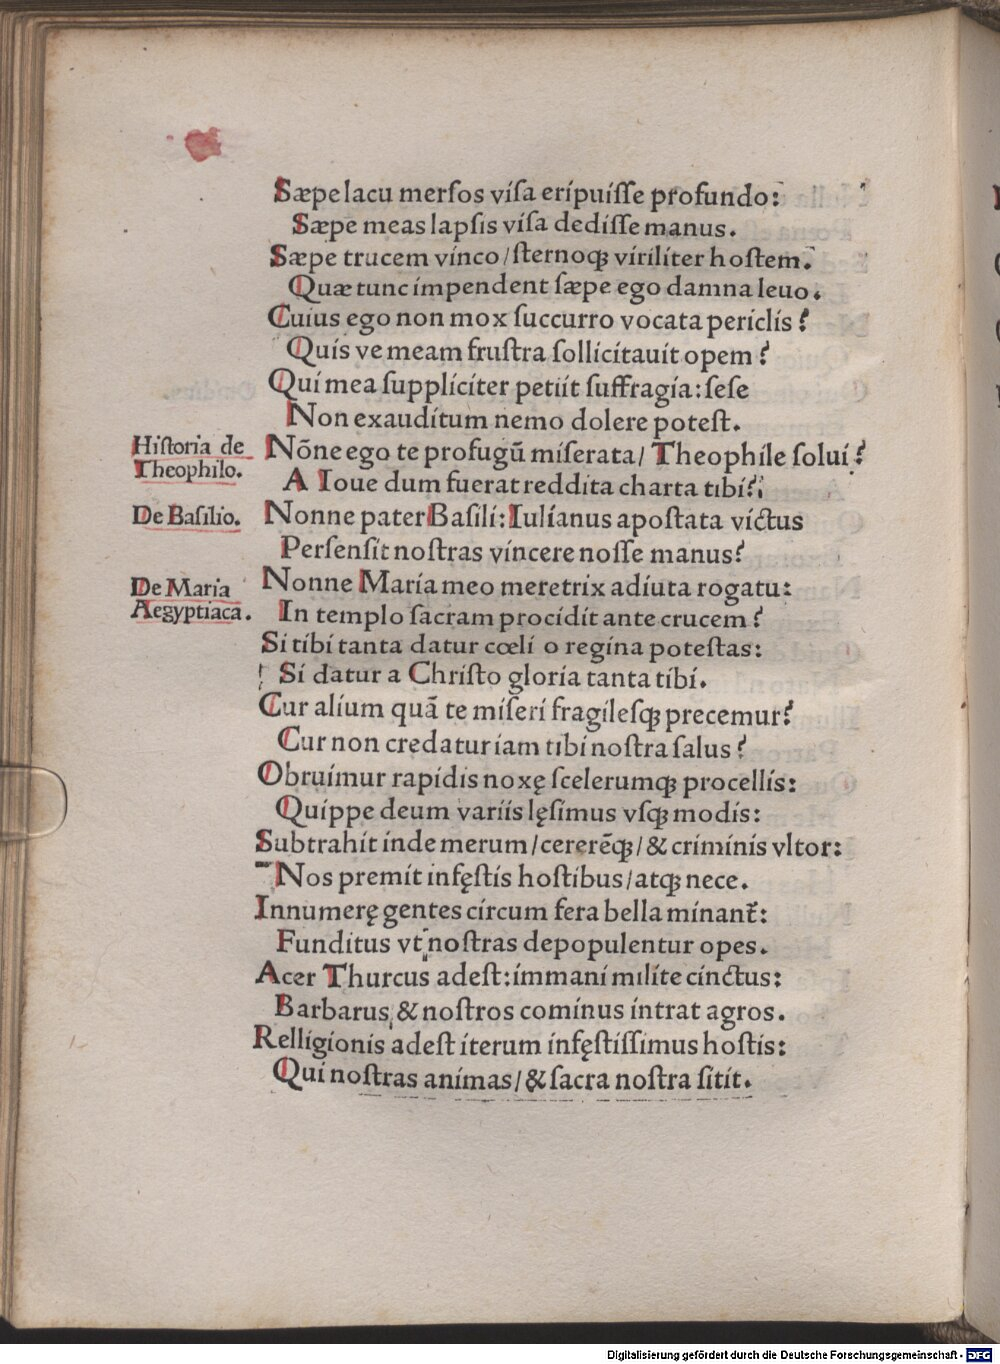 Sæpe lacu merſos viſa eripuiſſe profundo:
Sæpe meas lapſis viſa dediſſe manus.
Sæpe trucem vinco/ſternoqꝫ viriliter hoſtem.
Quæ tunc impendent ſæpe ego damna leuo.
Cuius ego non mox ſuccurro vocata periclis?
Quis ve meam fruſtra ſollicitauit opem?
Qui mea ſuppliciter petiit ſuffragia: ſeſe
Non exauditum nemo dolere poteſt.
Hiſtoria de
Theophilo.
Nõne ego te profugũ miſerata/ Theophile ſolui?
A Ioue dum fuerat reddita charta tibi?
De Baſilio.
Nonne pater Baſili: Iulianus apoſtata victus
Perſenſit noſtras vincere noſſe manus?
De Maria
Aegyptiaca.
Nonne Maria meo meretrix adiuta rogatu:
In templo ſacram procidit ante crucem?
Si tibi tanta datur cœli o regina poteſtas:
Si datur a Chriſto gloria tanta tibi.
Cur alium quã te miſeri fragileſqꝫ precemur?
Cur non credatur iam tibi noſtra ſalus?
Obruimur rapidis noxę ſcelerumqꝫ procellis:
Quippe deum variis lęſimus vſqꝫ modis:
Subtrahit inde merum/cererẽqꝫ/& criminis vltor:
Nos premit infęſtis hoſtibus/atqꝫ nece.
Innumerę gentes circum fera bella minant̃:
Funditus vt noſtras depopulentur opes.
Acer Thurcus adeſt: immani milite cinctus:
Barbarus & noſtros cominus intrat agros.
Relligionis adeſt iterum infęſtiſſimus hoſtis:
Qui noſtras animas/& ſacra noſtra ſitit.
Digitalisierung gefördert durch die Deutsche Forschungsgemeinschaft - DFG